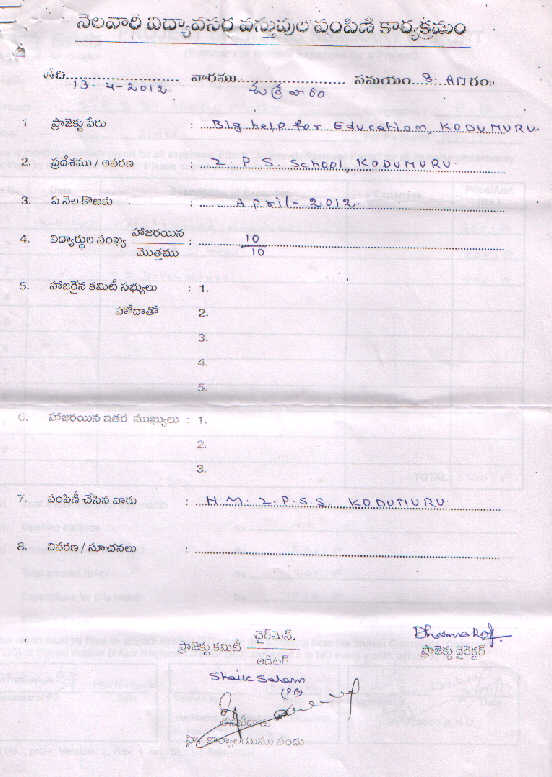 నెలవారి విద్యావసర వస్తువుల పంపిణి కార్యక్రమం
తేది 13-4-2012 వారము శుక్రవారం సమయం 8 AM గం
1 ప్రాజెక్టు పేరు : Big help for Education, KODUMURU.
2. ప్రదేశము / ఆవరణ : Z P.S. School, KODUMURU.
3. ఏ నెల కొఱకు : April - 2012
4. విద్యార్థుల సంఖ్య హాజరయిన : 10
మొత్తము 10
5. హాజరైన కమిటీ సభ్యులు : 1.
హోదాతో 2.
3.
4.
5.
6. హాజరయిన ఇతర ముఖ్యులు : 1.
2.
3.
7. పంపిణీ చేసిన వారు : H.M. Z.P.S.S. KODUMURU
8. వివరణ / సూచనలు :
ప్రాజెక్టు కమిటీ ఛైర్మెన్.
ఆడిటర్
ప్రాజెక్టు డైరెక్టర్
Shaik Salam
TOTAL